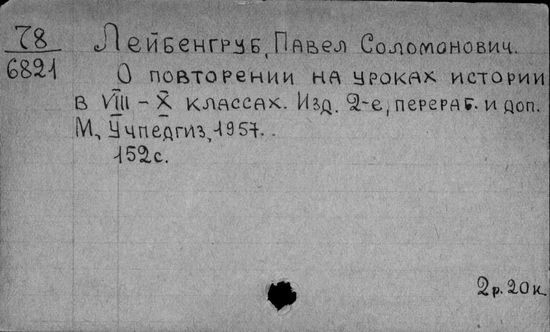 78
6821
Лейбенгруб, Павел Соломонович.
О повторении на уроках истории
в VIII – X классах. Изд. 2-е, перераб. и доп.
М., Учпедгиз, 1957.
152 с.
2 р. 20 к